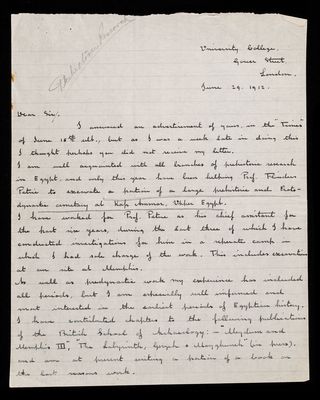 University College,
Gower Street
London.
June 29. 1912.
Dear Sir,
I answered an advertisement of yours, in the "Times"
of June 18th ult., but as I was a week late in doing this
I thought perhaps you did not receive my letter.
I am well acquainted with all branches of prehistoric research
in Egypt, and only this year have been helping Prof. Flinders
Petrie to excavate a portion of a large prehistoric and Proto-
dynastic cemetery at Kafr Ammar, Upper Egypt.
I have worked for Prof. Petrie as his chief assistant for
the past six years, during the last three of which I have
conducted investigations for him in a separate camp in
which I had sole charge of the work. This includes excavations
at our site at Memphis.
As well as predynastic work my experience has included
all periods, but I am especially well informed and
most interested in the earliest periods of Egyptian history.
I have contributed chapters to the following publications
of the British School of Archaeology: - "Meydum and
Memphis III", "The Labyrinth, Gerzeh & Mazghuneh" (in press).
and am at present writing a portion of a book on
the last seasons work.